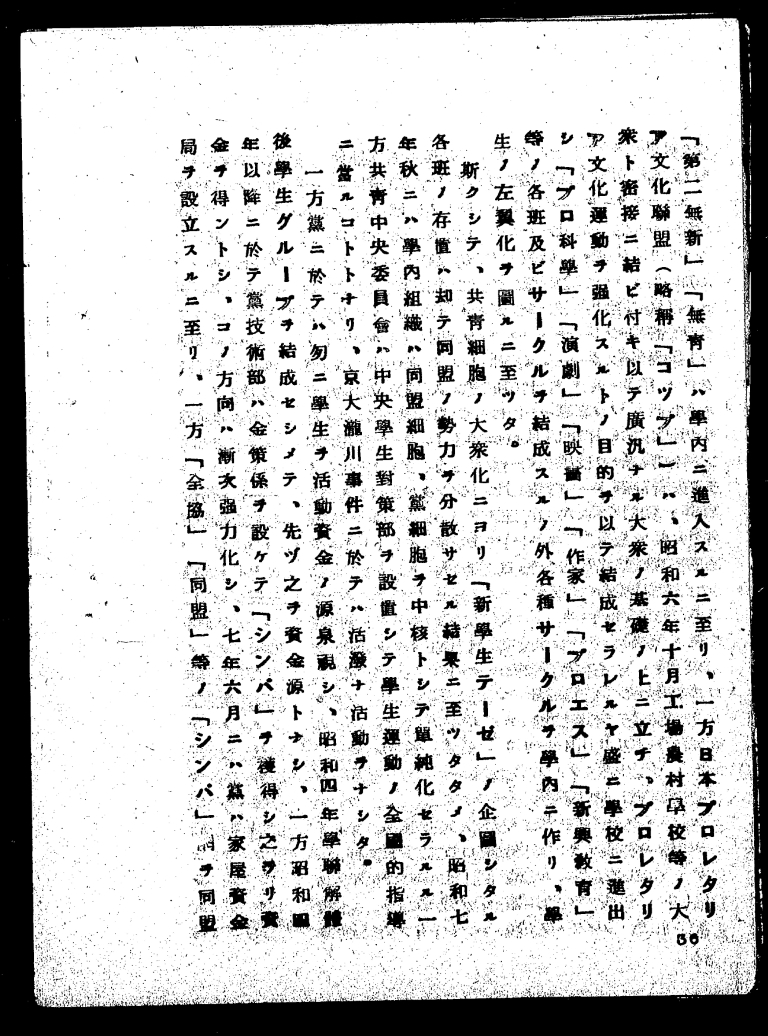 「第二無新」「無青」ハ學內ニ進入スルニ至リ、一方日本プロレタリ
ア文化聯盟（略稱「コツプ」）ハ、昭和六年十月工場農村學校等ノ大
衆ト密接ニ結ビ付キ以テ廣汎ナル大衆ノ基礎ノ上ニ立チ、プロレタリ
ア文化運動ヲ强化スルトノ目的ヲ以テ結成セラレルヤ盛ニ學校ニ進出
シ「プロ科學」「演劇」「映畵」「作家」「プロエス」「新興敎育」
等ノ各班及ビサークルヲ結成スルノ外各種サークルヲ學內ニ作リ、學
生ノ左翼化ヲ圖ルニ至ツタ。
斯クシテ、共靑細胞ノ大衆化ニヨリ「新學生テーゼ」ノ企圖シタル
各班ノ存置ハ却テ同盟ノ勢力ヲ分散サセル結果ニ至ツタタメ、昭和七
年秋ニハ學內組織ハ同盟細胞、黨細胞ヲ中核トシテ單純化セラルル一
方共靑中央委員會ハ中央學生對策部ヲ設置シテ學生運動ノ全國的指導
ニ當ルコトトナリ、京大瀧川事件ニ於テハ活潑ナ活動ヲナシタ。
一方黨ニ於テハ勿ニ學生ヲ活動資金ノ源泉視シ、昭和四年學聯解體
後學生グループヲ結成セシメテ、先ヅ之ヲ資金源トナシ、一方昭和四
年以降ニ於テ黨技術部ハ金策係ヲ設ケテ「シンパ」ヲ獲得シ之ヨリ資
金ヲ得ントシ、コノ方向ハ漸次强力化シ、七年六月ニハ黨ハ家屋資金
局ヲ設立スルニ至リ、一方「全協」「同盟」等ノ「シンパ」ヲ同盟
36